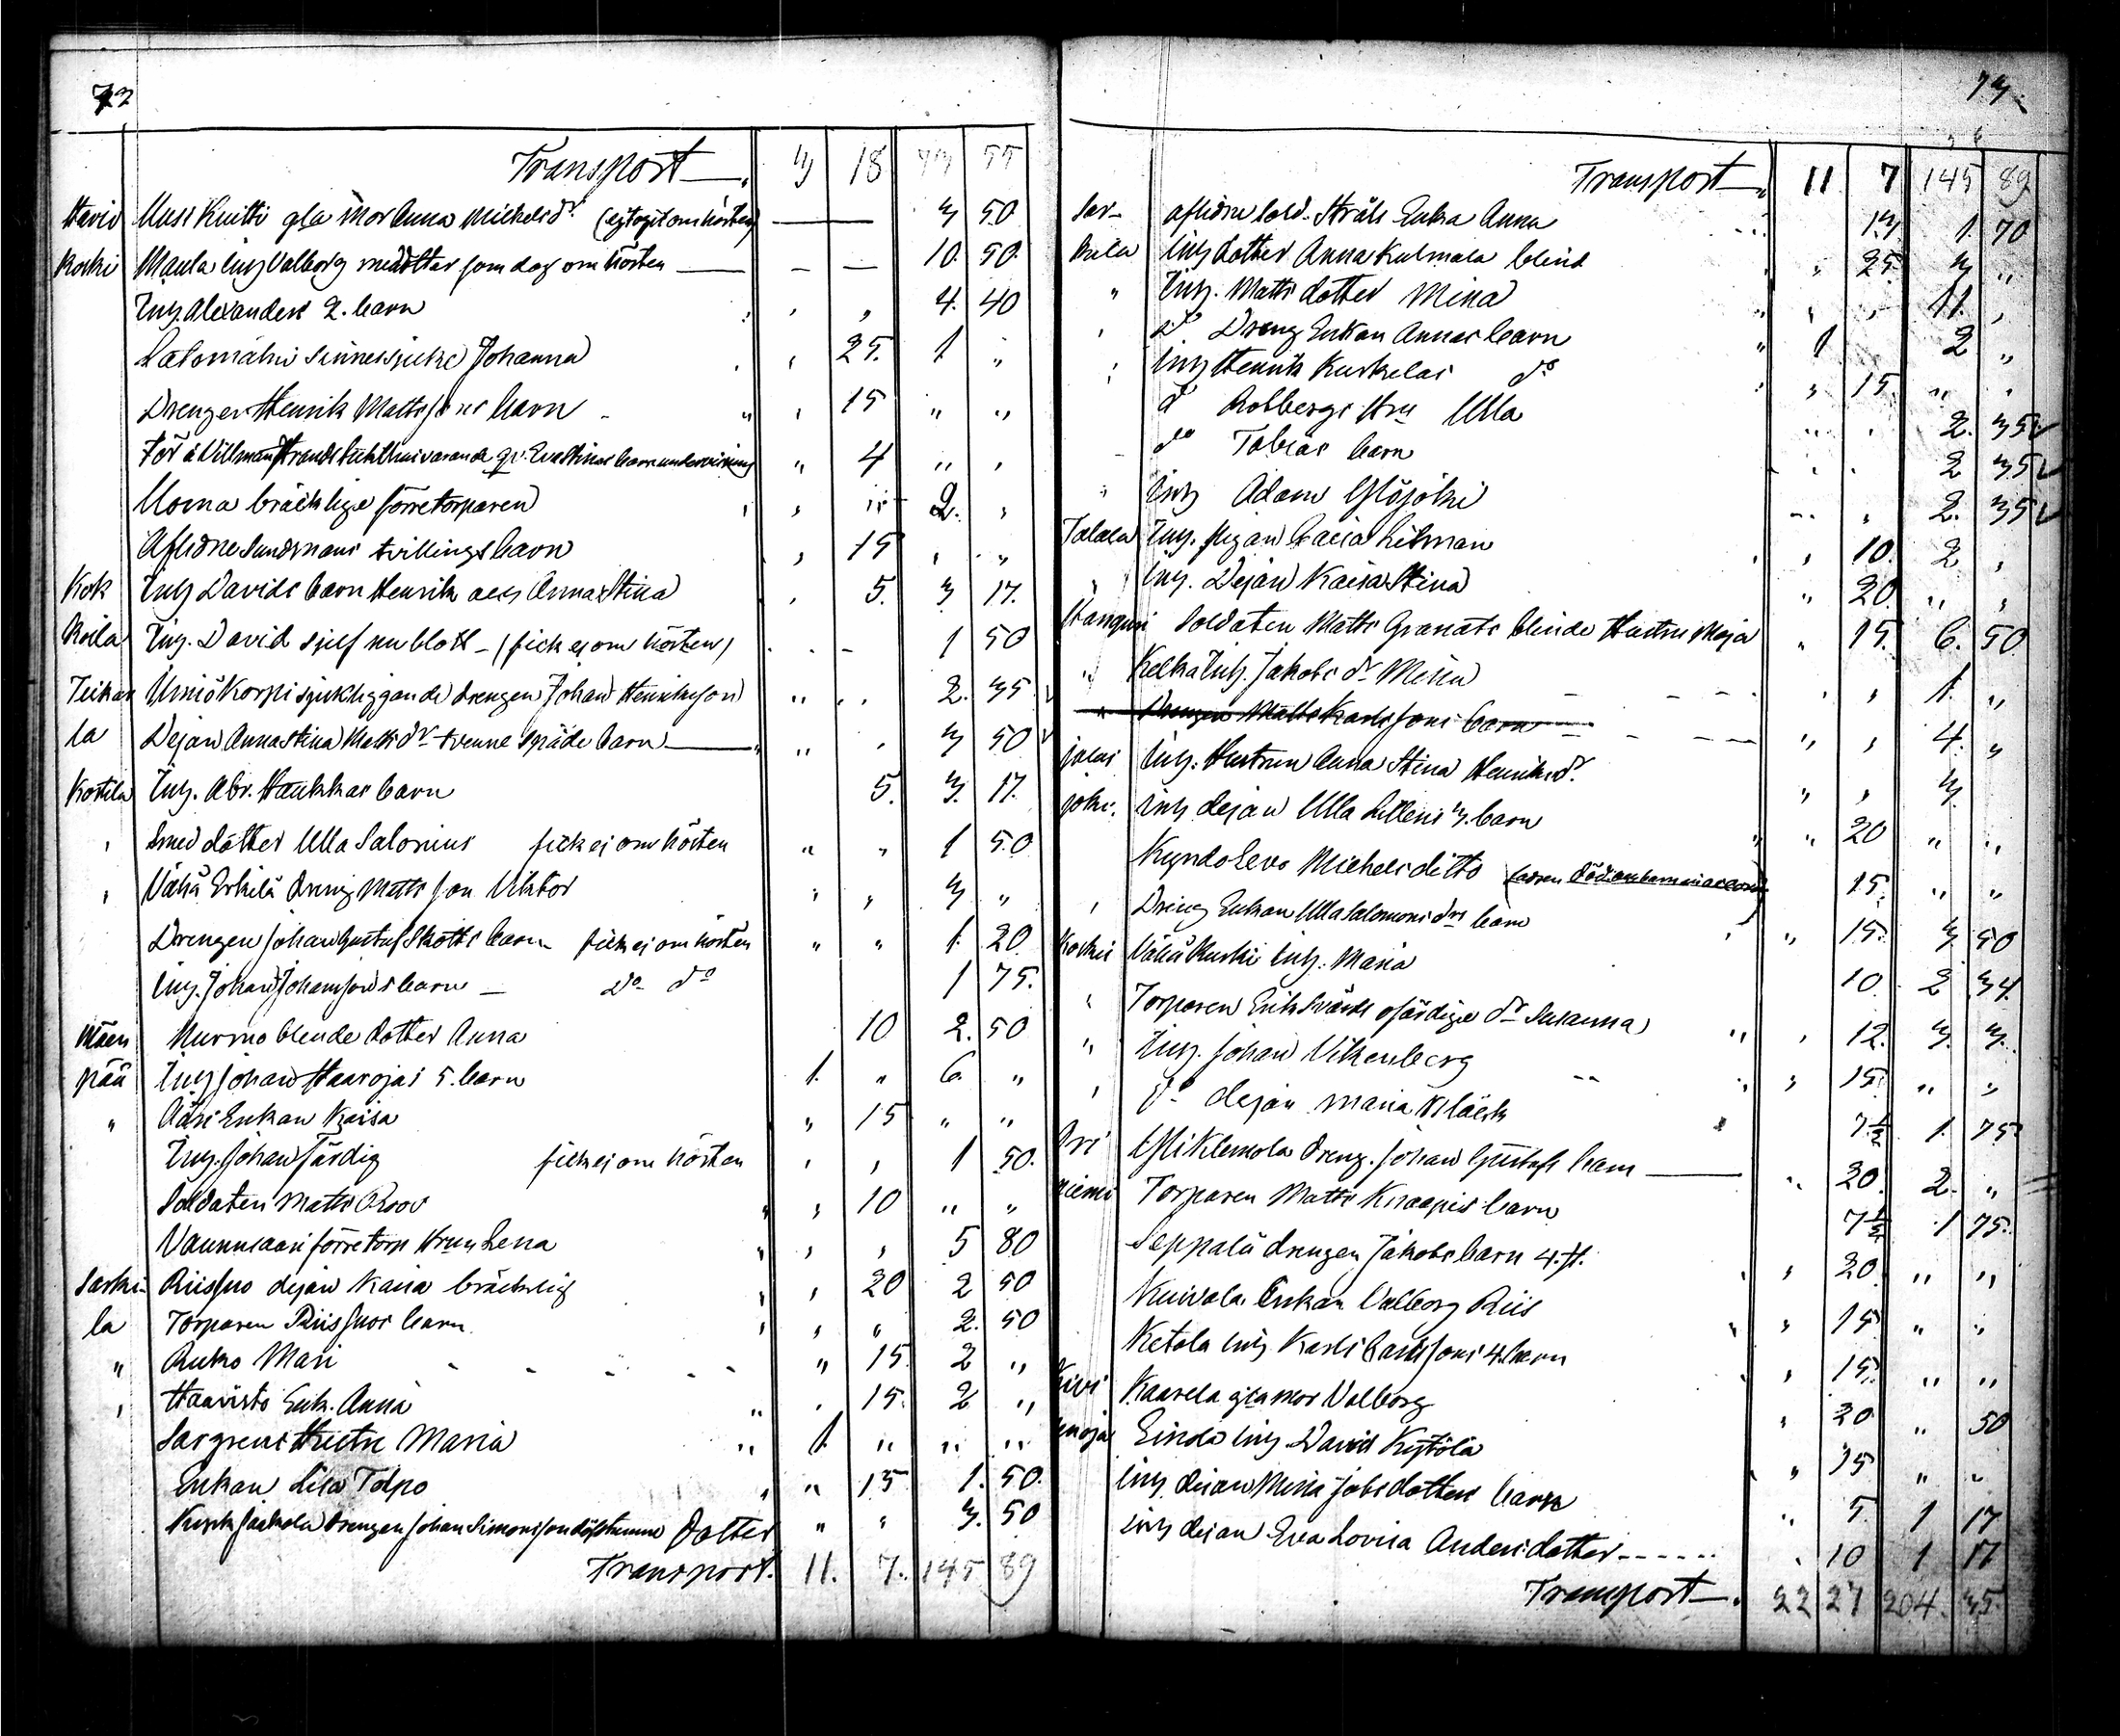 72
Transport 3 18 77 55
Havis Uusi Kuitti gla Mor Anna Michelsdr (ej togit om hösten) — 3 50
koski Maula Inh Valborg med dotter som dog om hösten — — — 10. 50.
Inh. Alexanders 2. barn " " 4. 40
Latomäki sinnessjuke Johanna " 25. 1 "
Drengen Henrik Mattssons barn " " 15 " "
För i Villmanstrands tukthus varande qv. Eva Stinas barns undervisning " 4 " "
Uoma bräcklige förre torparen " " 2. "
Aflidne Sundmans tvillings barn " 15 " "
Kok Inh Davids barn Henrik och Anna Stina " 5. 3. 17.
koila Inh. David sjelf nu blott - (fick ej om hösten) - - 1 50
Teikan Uusi Korpi sjukliggande drengen Johan Henriksson " " 2. 35
la Dejan Anna Stina Matts dr tvenne späde barn — " " 3 50
Kottila Inh. Abr. Haukkas barn 5. 3. 17.
" Smed dotter Ulla Salonius fick ej om hösten " " 1 50
" Vähä Erkilä dreng Matts son Viktor " " 3 "
Drengen Johan Gustaf Skotts barn fick ej om hösten " " 1. 20
Inh. Johan Johanssons barn — do do 1 75.
Mäen Murmo blinde dotter Anna 10 2. 50
pää Inh Johan Haarojas 5. barn 1. " 6. "
" Ääri Enkan Kaisa " 15 " "
Inh. Johan Färdig fick ej om hösten " " 1 50.
Soldaten Matts Roos " " 10 " "
Vaunusaari förre torp Hrun Lena " " " 5 80
Sarki- Riissuo dejan Kaisa bräcklig " " 20 2 50
la Torparen Riissuos barn " " " 2. 50
" Ruko Mari " 15 2 "
" Haavisto Enk. Anna " " 15. 2 "
Sargrens Hustru Maria " 1. " " "
Enkan Lisa Tolpo " " 15 1. 50.
Kusk Jaakola drengen Johan Simonsson döfstumme Dotter " " 3. 50
Transport. 11. 7. 145 89
73
Transport " 11 7 145 89
Sar- aflidne Sold. Stråls Enka Anna 13 1 70
kula Inh dotter Anna Kulmala blind " 25. 3 "
" Inh. Matts dotter Mina " " " 11. "
" do Dreng Enkan Annas barn " 1 2 "
" Inh Henrik Kuskelas do " " 15. " "
do Robbergs Hru Ulla " " 2. 35 v
do Tobias barn " " 2 35 v
" Inh Adam Ylöjoki " " 2. 35 v
Talala Inh. pigan Caisa Litman " " 10. 2 "
" Inh. Dejan Kaisa Stina " 20. " "
Hanguri Soldaten Matts Granats blinde Hustru Maja " 15. 6. 50
" Kelka Inh. Jakobs dr Mina " " 1. "
" Drengen Matts Karlssons barn " " 4. "
jalas Inh. Hustrun Anna Stina Henriksdr. " " 3.
joki. Inh dejan Ulla Lillens 3. barn " " 20 " "
Kyndolevo Michels ditto 15. " "
" Dreng Enkan Ulla Salomons drs barn " " 15. 3 50
Koskis Vähä Kuski Inh. Maria 10. 2 34.
" Torparen Erik Svärds ofärdige dr Susanna " " 12. 3. 3.
" Inh. Johan Vikenberg " " 15. " "
" do dejan Maria Kläck 7½ 1. 75.
Ori Yli Klemola dreng. Johan Gustafs barn — " 20. 2. "
niemi Torparen Matts Knaapis barn 7½ 1 75.
Seppälä drengen Jakobs barn 4. st. " " 20. " "
Kuivala Enkan Valborg Riis " " 15 " "
Ketola Inh Karls Carlssons 4. barn " " 15. " "
Kivi Kaarela gla mor Valborg " 20 " 50
noja Einola Inh David Kytölä " " 15 " "
Inh dejan Mina Jobs dotters barn " 5. 1 17
Inh dejan Eva Lovisa Anders dotter " 10 1 17
Transport 22 27 204. 35.